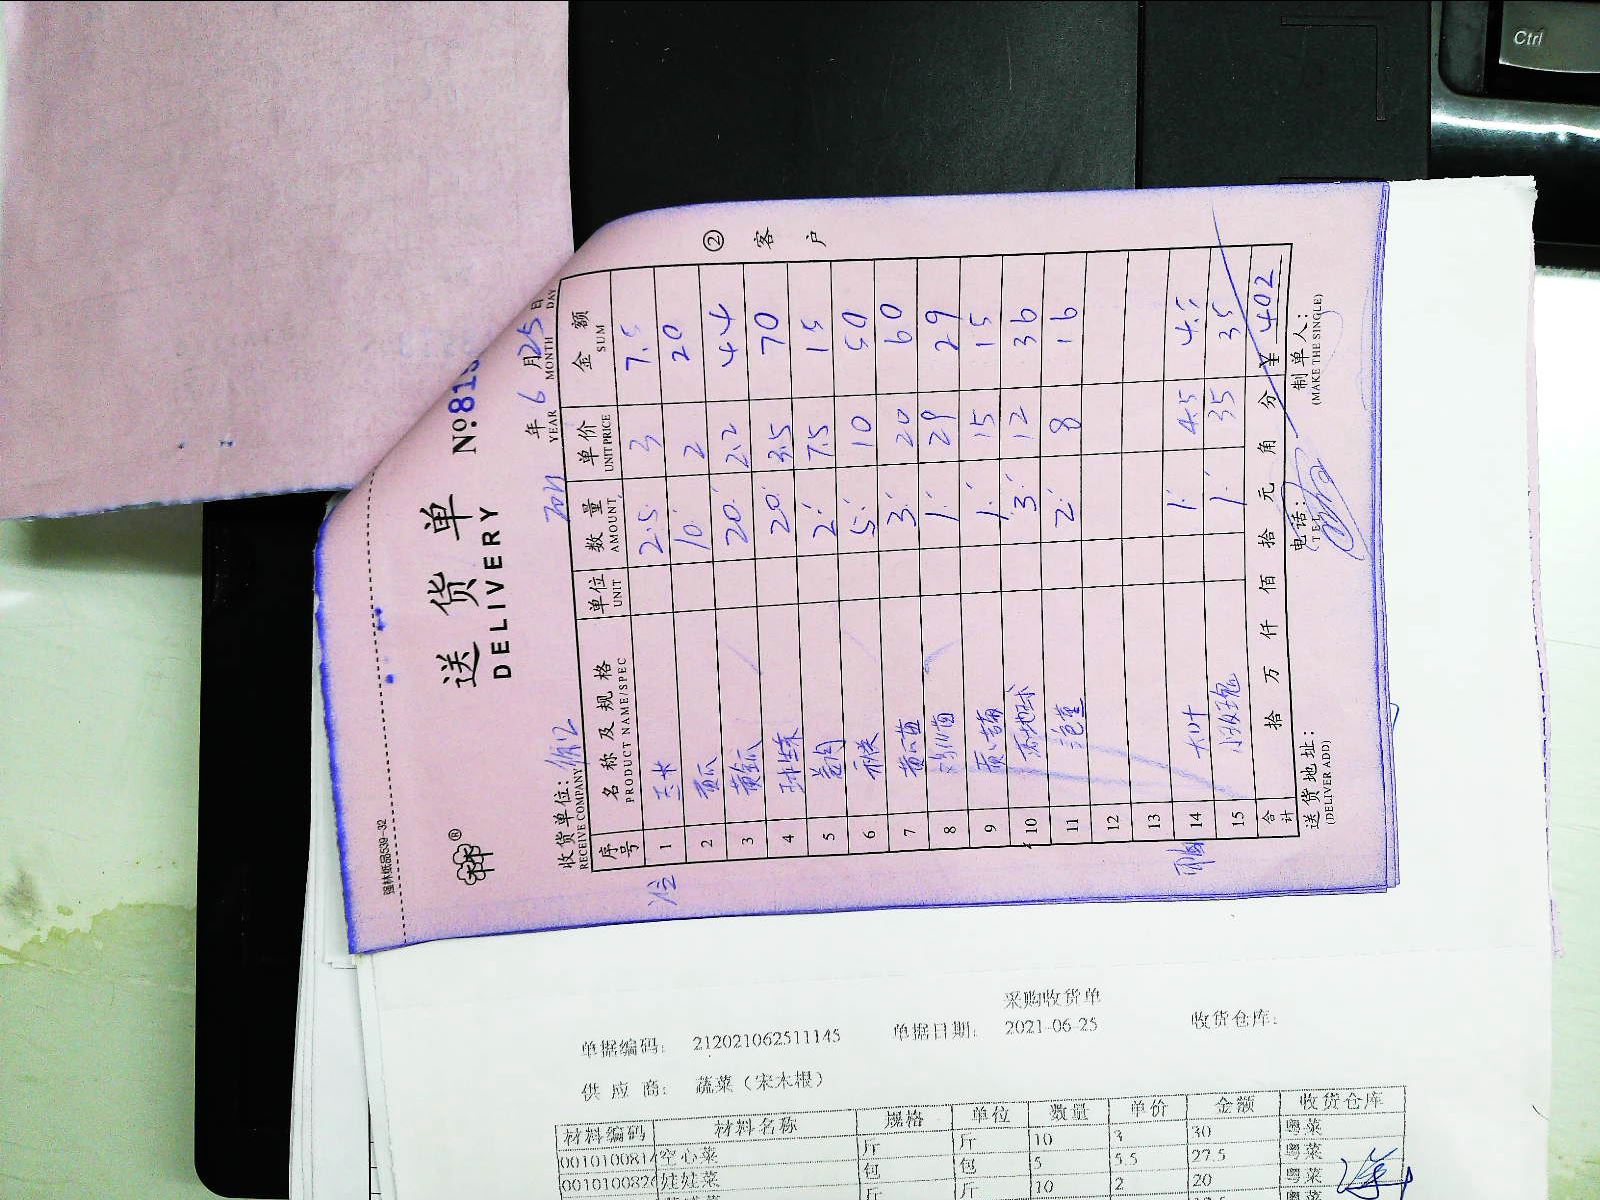 Ctrl
强林纸品539-32
送 货 单
DELIVERY
№:815
收货单位:
RECEIVE COMPANY
2021 年 6 月 25 日
YEAR MONTH DAY
② 客 户
序号 名称及规格 单位 数量 单价 金额
PRODUCT NAME/SPEC UNIT AMOUNT UNIT PRICE SUM
1 2.5 3 7.5
2 黄瓜 10 2 20
3 20 2.2 44
4 20 3.5 70
5 2 7.5 15
6 5 10 50
7 黄瓜苗 3 20 60
8 1 29 29
9 1 15 15
10 3 12 36
11 2 8 16
12
13
14 大叶 1 4.5 4.5
15 小玫瑰 1 35 35
合计 拾 万 仟 佰 拾 元 角 分 ¥ 402
送货地址:
(DELIVER ADD)
电话:
(TEL)
制单人:
(MAKE THE SINGLE)
采购收货单
单据编码: 212021062511145 单据日期: 2021-06-25 收货仓库:
供 应 商: 蔬菜(宋木根)
材料编码 材料名称 规格 单位 数量 单价 金额 收货仓库
0010100814 空心菜 斤 斤 10 3 30 粤菜
0010100826 娃娃菜 包 包 5 5.5 27.5 粤菜
斤 斤 10 2 20 粤菜
粤菜